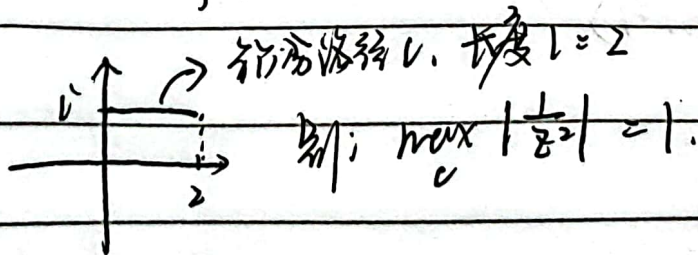 积分路径 C. 长度 l = 2
i
则: max_C |1/z²| = 1.
2